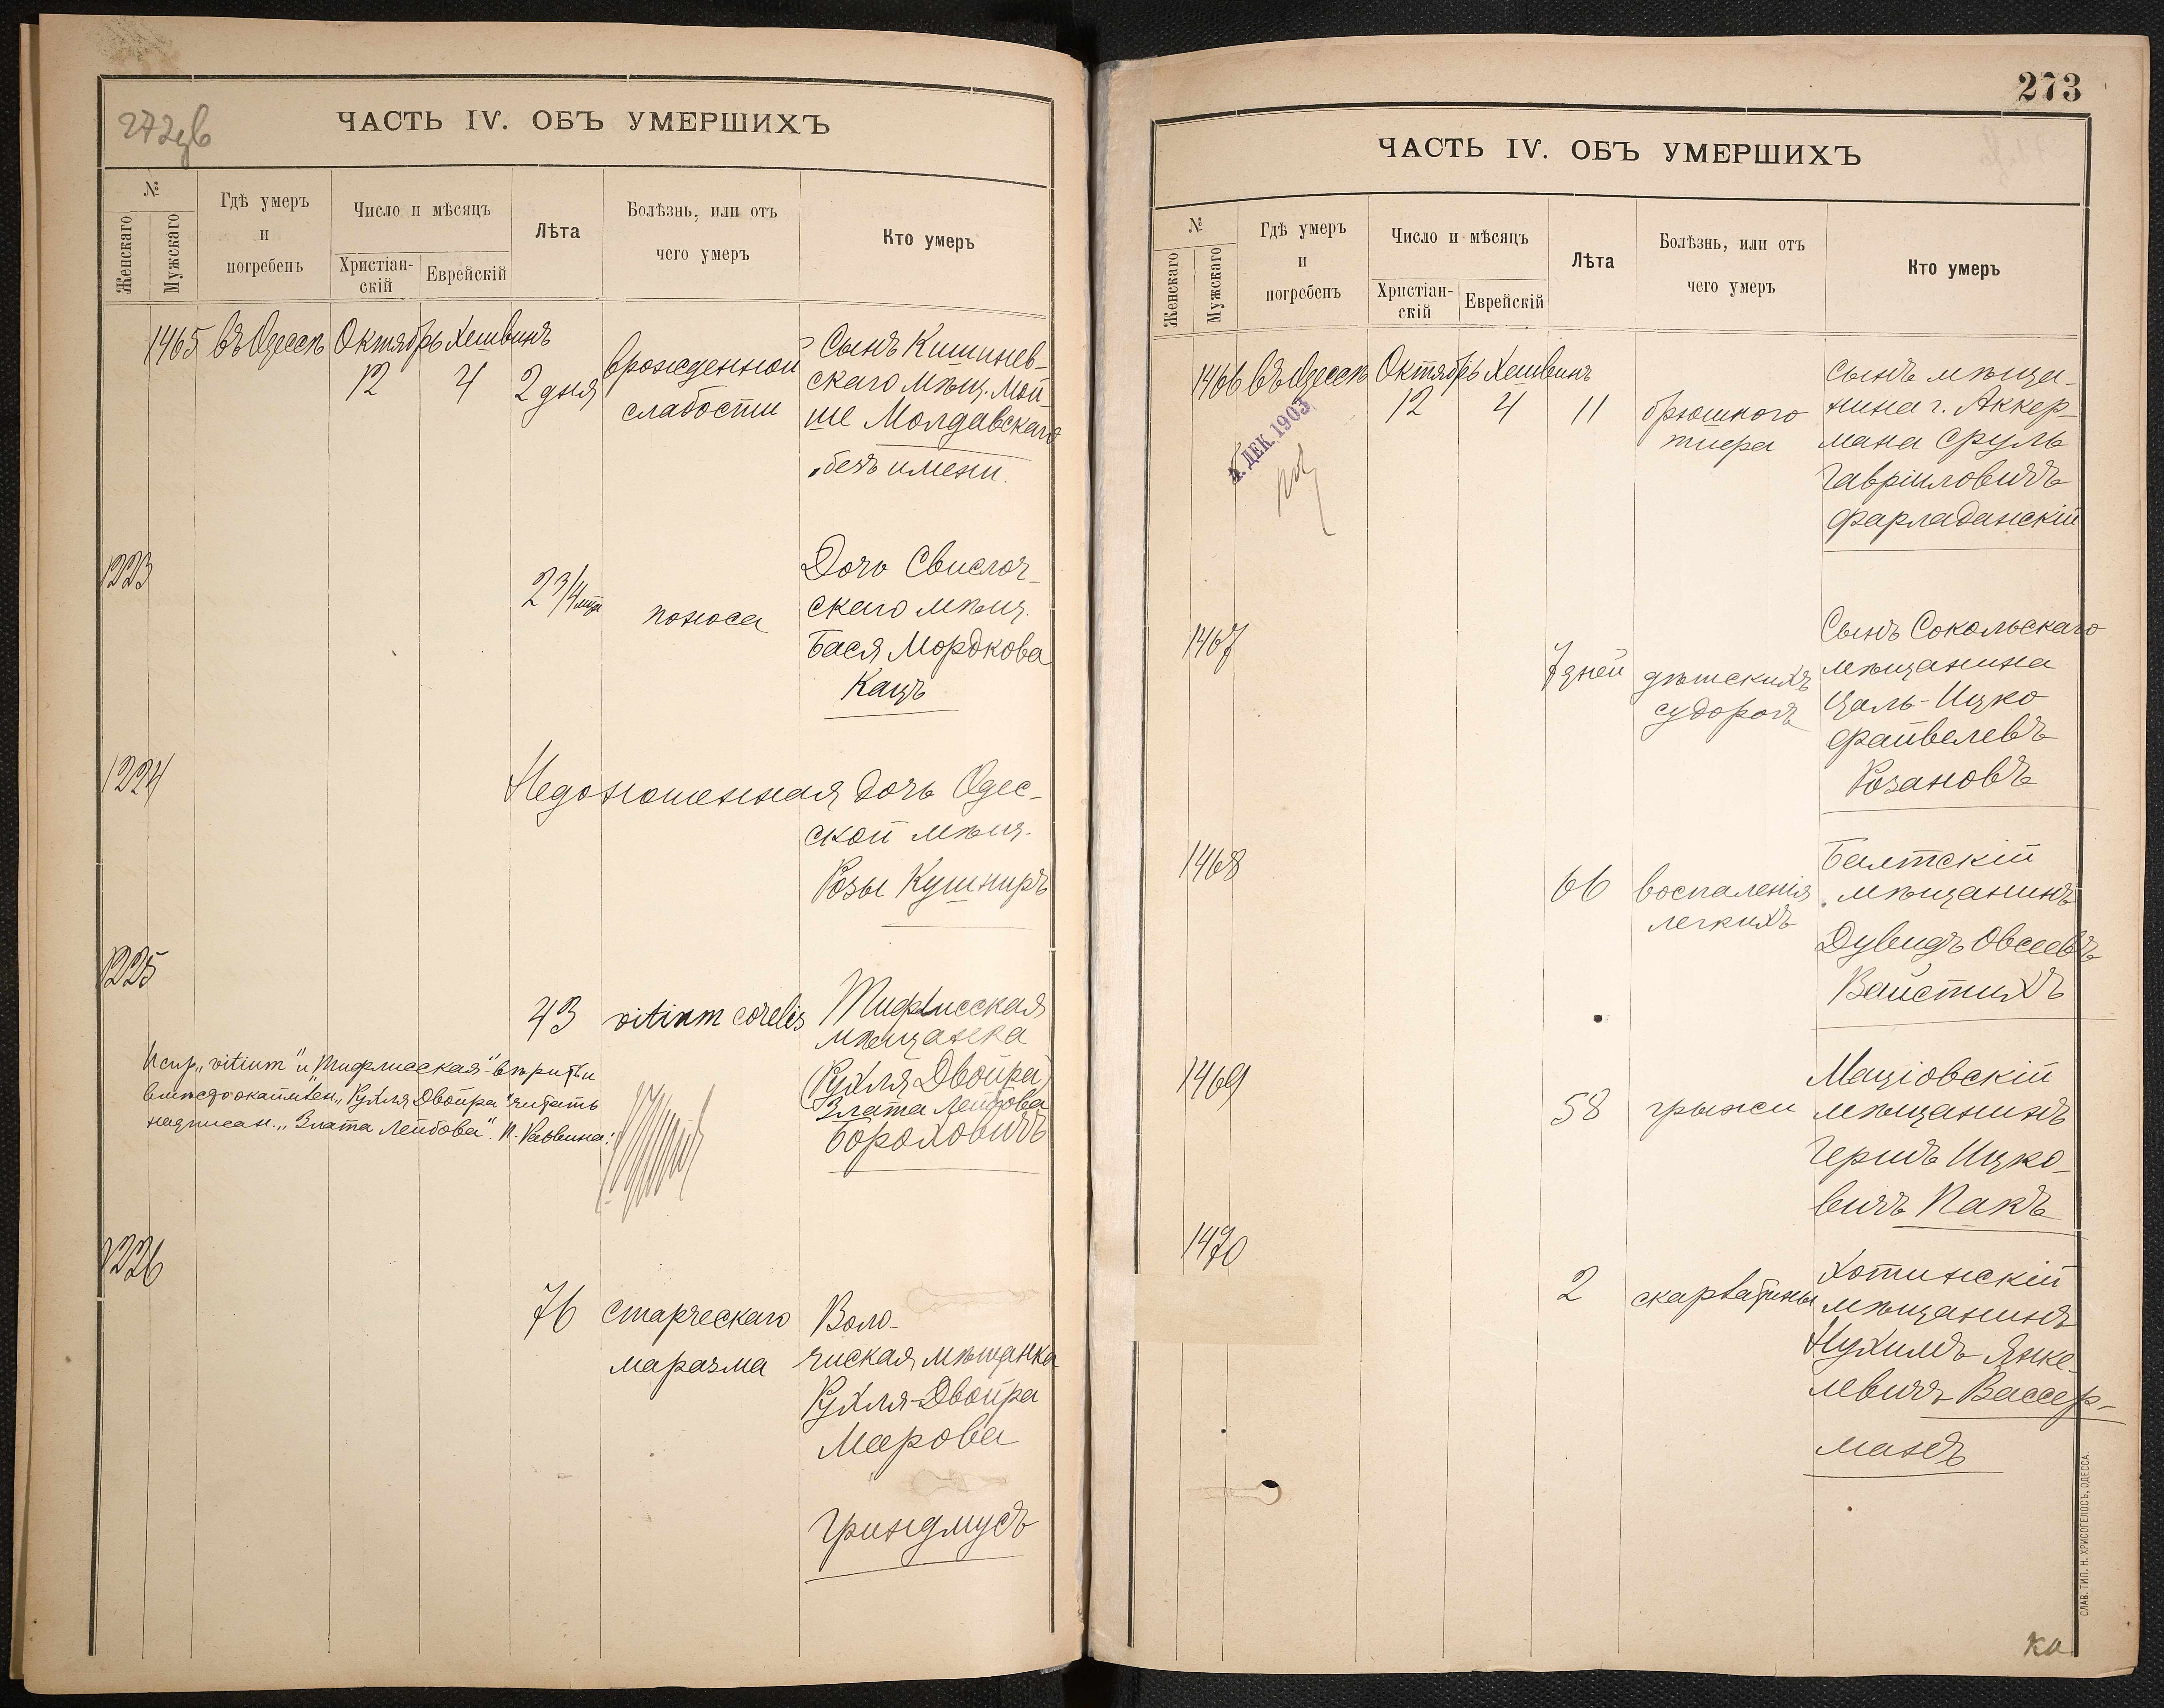 272 об
ЧАСТЬ IV. ОБЪ УМЕРШИХЪ
№
Женскаго
Мужскаго
Гдѣ умеръ
и
погребенъ
Число и мѣсяцъ
Христіан-
скій
Еврейскій
Лѣта
Болѣзнь, или отъ
чего умеръ
Кто умеръ
1465 въ Одессѣ Октябрь Хешвинъ
12 4 2 дня
врожденной
слабости
Сынъ Кишинев-
скаго мѣщ. Мой-
ше Молдавскаго
безъ имени.
1223
2 3/4 мца
поноса
Дочь Свислоч-
скаго мѣщ.
Бася Мордкова
Кацъ
1224
Недоношенная дочь Одес-
ской мѣщ.
Розы Кушниръ
1225
43 vitium cordis
Тифлисская
мѣщанка
(Рухля Двойра)
Злата Лейбова
Бороховичъ
Испр. "vitium" и "Тифлисская" вѣрить и
вмѣсто окаймлен. "Рухля Двойра" читать
надписан. "Злата Лейбова". П. Раввина:
1226
76 старческаго
маразма
Воло-
чиская мѣщанка
Рухля-Двойра
Марова
Гриндмусъ
273
ЧАСТЬ IV. ОБЪ УМЕРШИХЪ
№
Женскаго
Мужскаго
Гдѣ умеръ
и
погребенъ
Число и мѣсяцъ
Христіан-
скій
Еврейскій
Лѣта
Болѣзнь, или отъ
чего умеръ
Кто умеръ
1466 въ Одессѣ Октябрь Хешвинъ
12 4 11
ДЕК. 1903
брюшного
тифа
сынъ мѣща-
нина г. Аккер-
мана Сруль
Гавріиловичъ
Фарладанскій
1467
7 дней дѣтскихъ
судорогъ
Сынъ Сокольскаго
мѣщанина
Цаль-Ицко
Файвелевъ
Розановъ
1468
66 воспаленія
легкихъ
Балтскій
мѣщанинъ
Дувидъ Овсеевъ
Вайстихъ
1469
58 грыжи
Маціовскій
мѣщанинъ
Гершъ Ицко-
вичъ Пакъ
1470
2 скарлатины
Хотинскій
мѣщанинъ
Нухимъ Янке-
левичъ Вассер-
манъ
СЛАВ. ТИП. Н. ХРИСОГЕЛОСЪ, ОДЕССА.